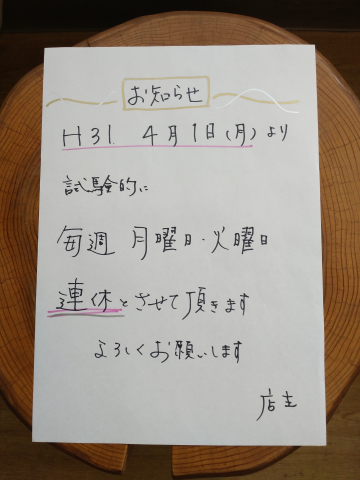 お知らせ
H31. 4月1日(月)より
試験的に
毎週 月曜日・火曜日
連休とさせて頂きます
よろしくお願いします
店主